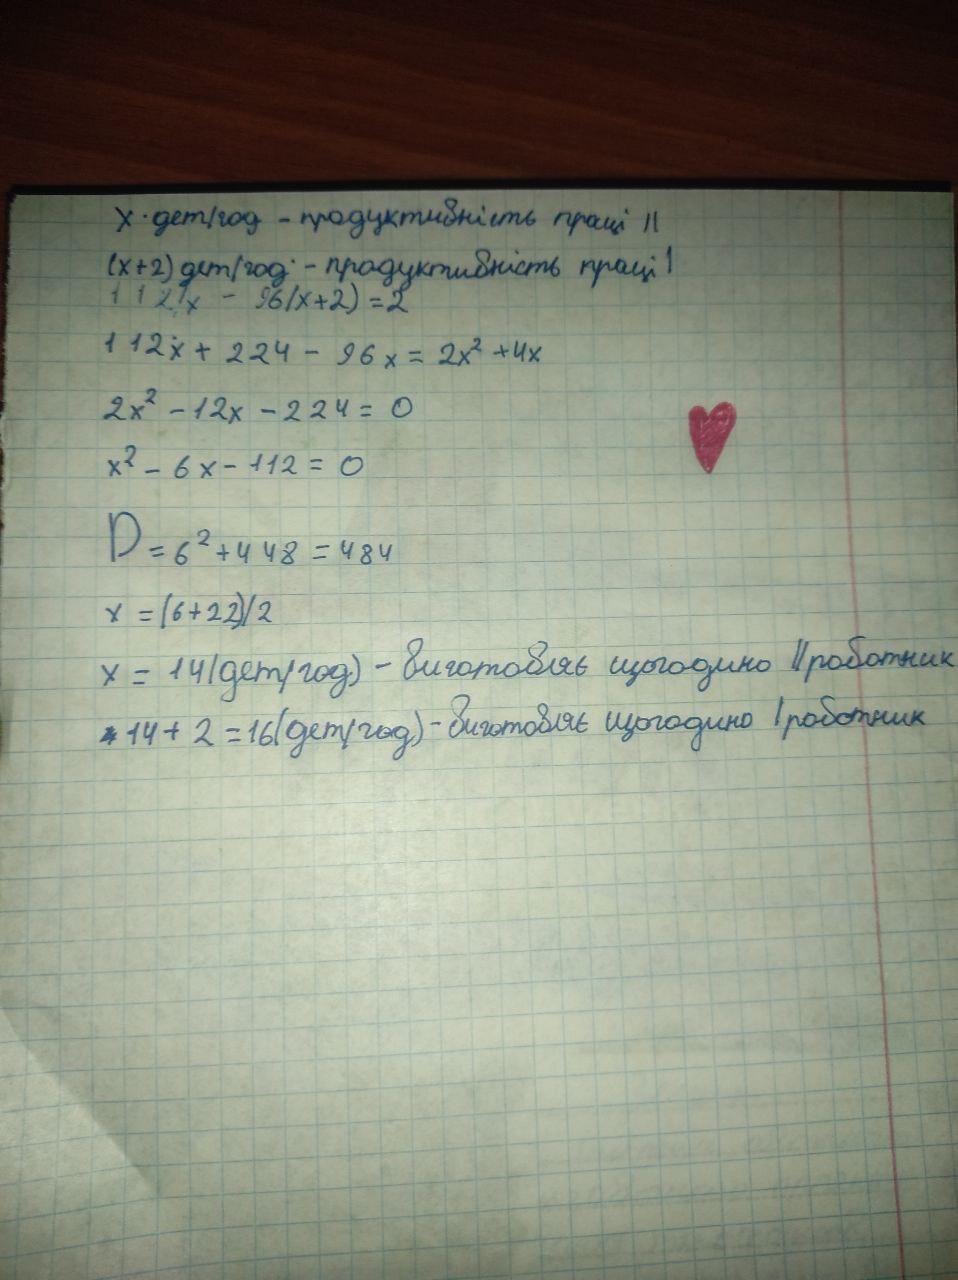 x · дет/год - продуктивність праці II
(x+2) дет/год - продуктивність праці I
112/x - 96/(x+2) = 2
112x + 224 - 96x = 2x² + 4x
2x² - 12x - 224 = 0
x² - 6x - 112 = 0
D = 6² + 448 = 484
x = (6+22)/2
x = 14(дет/год) - виготовляє щогодино II роботник
14 + 2 = 16(дет/год) - виготовляє щогодино I роботник